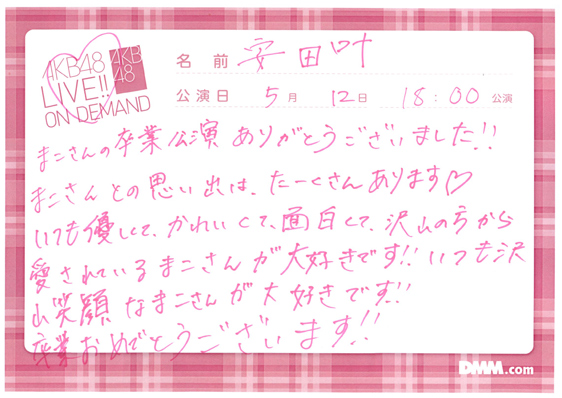 AKB48
LIVE!!
ON DEMAND
AKB
48
名前 安田叶
公演日 5月 12日 18:00 公演
まこさんの卒業公演ありがとうございました!!
まこさんとの思い出は、たーくさんあります♡
いつも優しくて、かわいくて、面白くて、沢山の方から
愛されているまこさんが大好きです!!いつも沢
山笑顔なまこさんが大好きです!!
卒業おめでとうございます!!
DMM.com